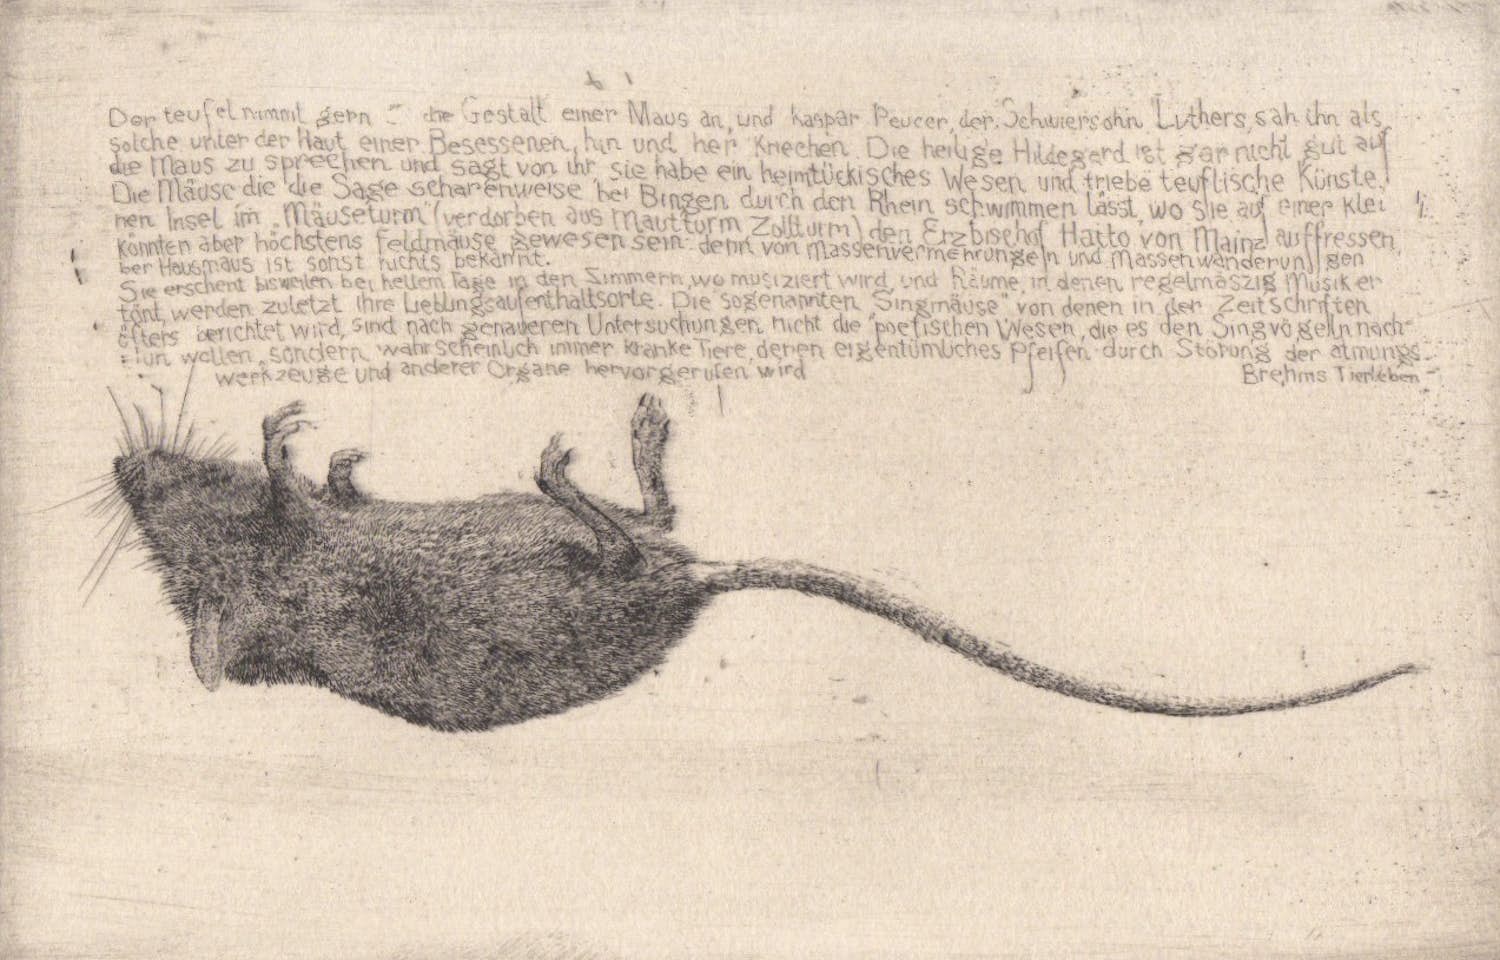 Der teufel nimmt gern die Gestalt einer Maus an, und Kaspar Peucer, der Schwiersohn Luthers, sah ihn als
solche unter der Haut einer Besessenen, hin und her Kriechen. Die heilige Hildegard ist gar nicht gut auf
die Maus zu sprechen und sagt von ihr, sie habe ein heimtückisches Wesen und triebe teuflische Künste.
Die Mäuse die die Sage scharenweise bei Bingen durch den Rhein schwimmen lässt, wo sie auf einer klei
nen Insel im „Mäuseturm" (verdorben aus Mautturm Zollturm) den Erzbischof Hatto von Mainz auffressen,
könnten aber höchstens Feldmäuse gewesen sein: denn von Massenvermehrungen und Massenwanderungen
der Hausmaus ist sonst nichts bekannt.
Sie erscheint bisweilen bei hellem Tage in den Zimmern, wo musiziert wird, und Räume, in denen regelmäszig Musik er
tönt, werden zuletzt ihre Lieblingsaufenthaltsorte. Die sogenannten "Singmäuse" von denen in der Zeitschriften
öfters berichtet wird, sind nach genaueren Untersuchungen nicht die poetischen Wesen, die es den Singvögeln nach-
tun wollen, sondern wahrscheinlich immer kranke Tiere, deren eigentümliches Pfeifen durch Störung der atmungs-
werkzeuge und anderer Organe hervorgerufen wird
Brehms Tierleben